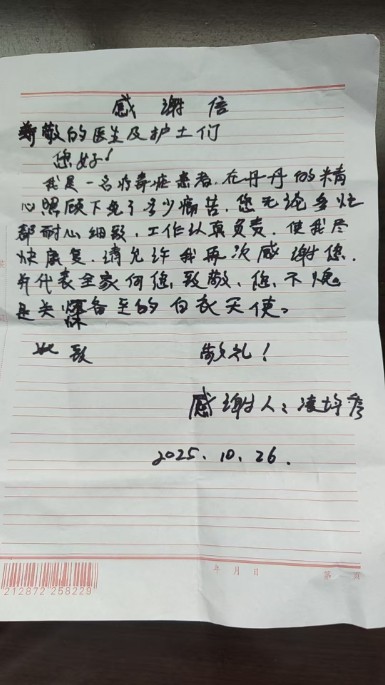 感谢信
尊敬的医生及护士们
您好!
我是一名尿毒症患者,在丹丹的精
心照顾下免了多少痛苦,您无论多忙
都耐心细致,工作认真负责,使我尽
快康复,请允许我再次感谢您,
并代表全家向您,致敬,您,不愧
是关怀备至的白衣天使。
此致 敬礼!
感谢人:凌
2025.10.26.
年 月 日 第 页
212872 258229